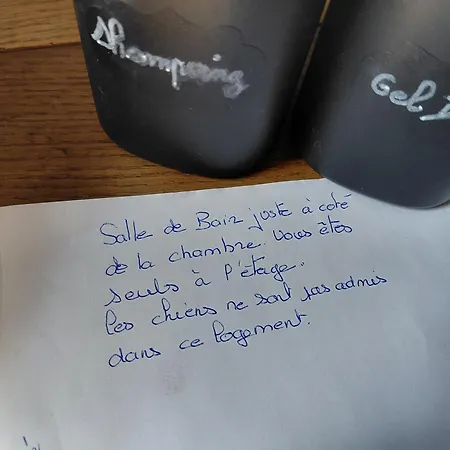 Shampoing
Gel
Salle de Bain juste à coté
de la chambre. Vous êtes
seuls à l'étage.
Les chiens ne sont pas admis
dans ce logement.